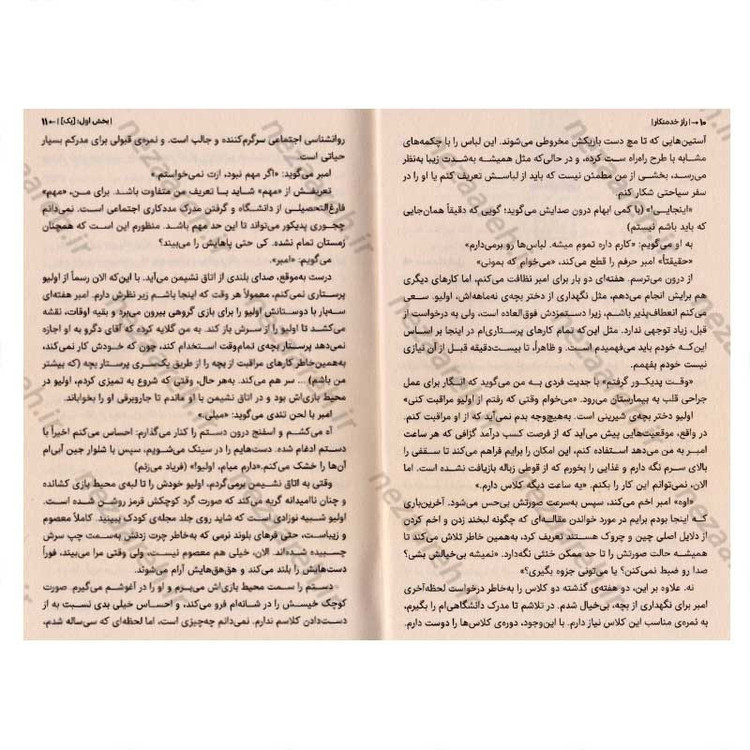 ۱۰ → | راز خدمتکار |
آستین‌هایی که تا مچ دست باریکش مخروطی می‌شوند. این لباس را با چکمه‌های
مشابه با طرح راه‌راه ست کرده، و در حالی‌که مثل همیشه به‌شدت زیبا به‌نظر
می‌رسد، بخشی از من مطمئن نیست که باید از لباسش تعریف کنم یا او را در
سفر سیاحتی شکار کنم.
«اینجایی!» (با کمی ابهام درون صدایش می‌گوید؛ گویی که دقیقاً همان‌جایی
که باید باشم نیستم)
به او می‌گویم: «کارم داره تموم میشه. لباس‌ها رو برمی‌دارم»
«حقیقتاً» امبر حرفم را قطع می‌کند، «می‌خوام که بمونی»
از درون می‌ترسم. هفته‌ای دو بار برای امبر نظافت می‌کنم، اما کارهای دیگری
هم برایش انجام می‌دهم، مثل نگهداری از دختر بچه‌ی نه‌ماهه‌اش، اولیو. سعی
می‌کنم انعطاف‌پذیر باشم، زیرا دستمزدش فوق‌العاده است، ولی به درخواست از
قبل، زیاد توجهی ندارد. مثل این‌که تمام کارهای پرستاری‌ام در اینجا بر اساس
این‌که خودم باید می‌فهمیدم است. و ظاهراً، تا بیست‌دقیقه قبل از آن نیازی
نیست خودم بفهمم.
«وقت پدیکور گرفتم» با جدیت فردی به من می‌گوید که انگار برای عمل
جراحی قلب به بیمارستان می‌رود. «می‌خوام وقتی که رفتم از اولیو مراقبت کنی»
اولیو دختر بچه‌ی شیرینی است. به‌هیچ‌وجه بدم نمی‌آید که از او مراقبت کنم.
در واقع، موقعیت‌هایی پیش می‌آید که از فرصت کسب درآمد گزافی که هر ساعت
امبر به من می‌دهد استفاده کنم، این امکان را برایم فراهم می‌کند تا سقفی را
بالای سرم نگه دارم و غذایی را بخورم که از قوطی زباله بازیافت نشده است. اما
الان، نمی‌توانم این کار را بکنم. «یه ساعت دیگه کلاس دارم.»
«اوه» امبر اخم می‌کند، سپس به‌سرعت صورتش بی‌حس می‌شود. آخرین‌باری
که اینجا بودم برایم در مورد خواندن مقاله‌ای که چگونه لبخند زدن و اخم کردن
از دلایل اصلی چین و چروک هستند تعریف کرد، به‌همین خاطر تلاش می‌کند تا
همیشه حالت صورتش را تا حد ممکن خنثی نگه‌دارد. «نمیشه بی‌خیالش بشی؟
صدا رو ضبط نمی‌کنن؟ یا می‌تونی جزوه بگیری؟»
نه. علاوه بر این، دو هفته‌ی گذشته دو کلاس را به‌خاطر درخواست لحظه‌آخری
امبر برای نگهداری از بچه، بی‌خیال شدم. در تلاشم تا مدرک دانشگاهی‌ام را بگیرم،
به نمره‌ی مناسب این کلاس نیاز دارم. با این‌وجود، دوره‌ی کلاس‌ها را دوست دارم.
| بخش اول: [یک] | ← ۱۱
روانشناسی اجتماعی سرگرم‌کننده و جالب است. و نمره‌ی قبولی برای مدرکم بسیار
حیاتی است.
امبر می‌گوید: «اگر مهم نبود، ازت نمی‌خواستم.»
تعریفش از «مهم» شاید با تعریف من متفاوت باشد. برای من، «مهم»
فارغ‌التحصیلی از دانشگاه و گرفتن مدرک مددکاری اجتماعی است. نمی‌دانم
چجوری پدیکور می‌تواند تا این حد مهم باشد. منظورم این است که همچنان
زمستان تمام نشده. کی حتی پاهایش را می‌بیند؟
می‌گویم: «امبر».
درست به‌موقع، صدای بلندی از اتاق نشیمن می‌آید. با این‌که الان رسماً از اولیو
پرستاری نمی‌کنم، معمولاً هر وقت که اینجا باشم زیر نظرش دارم. امبر هفته‌ای
سه‌بار با دوستانش اولیو را برای بازی گروهی بیرون می‌برد و بقیه اوقات، نقشه
می‌کشد تا اولیو را از سرش باز کند. به من گلایه کرده که آقای دگرو به او اجازه
نمی‌دهد پرستار بچه‌ی تمام‌وقت استخدام کند، چون که خودش کار نمی‌کند،
به‌همین‌خاطر کارهای مراقبت از بچه را از طریق یک‌سری پرستار بچه (که بیشتر
من باشم) ... سر هم می‌کند. به‌هر حال، وقتی که شروع به تمیزی کردم، اولیو در
محیط بازی‌اش بود و در اتاق نشیمن با او ماندم تا جاروبرقی او را بخواباند.
امبر با لحن تندی می‌گوید: «میلی.»
آه می‌کشم و اسفنج درون دستم را کنار می‌گذارم: احساس می‌کنم اخیراً با
دستم ادغام شده. دست‌هایم را در سینک می‌شویم، سپس با شلوار جین آبی‌ام
آن‌ها را خشک می‌کنم.«دارم میام، اولیو!» (فریاد می‌زنم)
وقتی به اتاق نشیمن برمی‌گردم، اولیو خودش را تا لبه‌ی محیط بازی کشانده
و چنان ناامیدانه گریه می‌کند که صورت گرد کوچکش قرمز روشن شده است.
اولیو شبیه نوزادی است که شاید روی جلد مجله‌ی کودک ببینید. کاملاً معصوم
و زیباست، حتی فرهای بلوند نرمی که به‌خاطر چرت زدنش به‌سمت چپ سرش
چسبیده شده‌اند. الان، خیلی هم معصوم نیست، ولی وقتی مرا می‌بیند، فوراً
دست‌هایش را بلند می‌کند و هق‌هق‌هایش آرام می‌شوند.
دستم را سمت محیط بازی‌اش می‌برم و او را در آغوشم می‌گیرم. صورت
کوچک خیسش را در شانه‌ام فرو می‌کند، و احساس خیلی بدی نسبت به از
دست‌دادن کلاسم ندارم. نمی‌دانم چه‌چیزی است، اما لحظه‌ای که سی‌ساله شدم،
nezaareh.ir